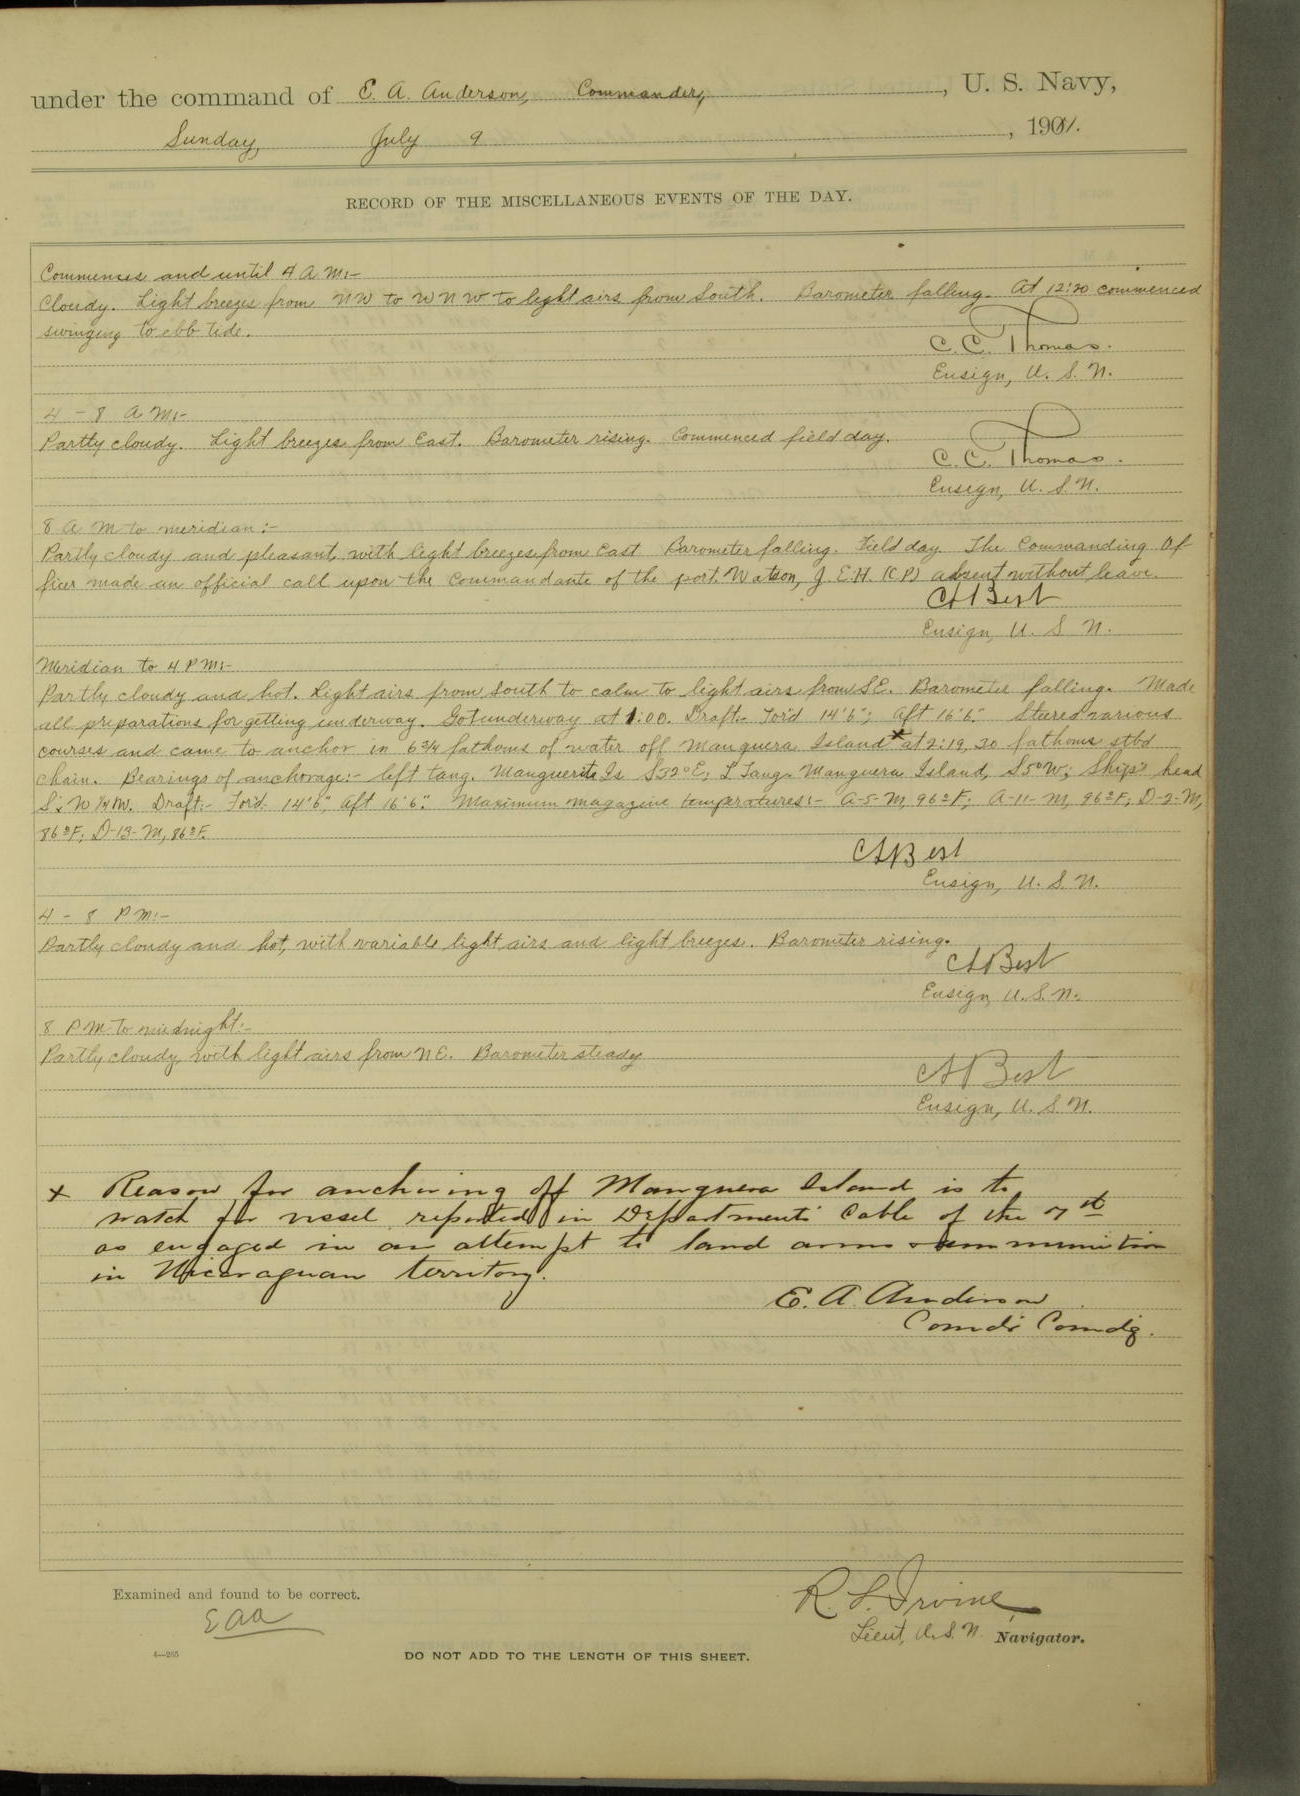 under the command of E. A. Anderson, Commander, , U. S. Navy,
Sunday, July 9 , 1911.
RECORD OF THE MISCELLANEOUS EVENTS OF THE DAY.
Commences and until 4 A M:-
Cloudy. Light breezes from NW to WNW to light airs from South. Barometer falling. At 12:20 commenced
swinging to ebb tide.
C. C. Thomas.
Ensign, U. S. N.
4 - 8 A M:-
Partly cloudy. Light breezes from East. Barometer rising. Commenced field day.
C. C. Thomas.
Ensign, U. S. N.
8 A M to meridian:-
Partly cloudy and pleasant, with light breezes from East Barometer falling. Field day The Commanding Of
ficer made an official call upon the Commandante of the port. Watson, J. E. H. (CP) absent without leave.
C A Best
Ensign, U. S N.
Meridian to 4 P M:-
Partly cloudy and hot. Light airs from South to calm to light airs from SE. Barometer falling. Made
all preparations for getting underway. Got underway at 1:00. Draft- For'd 14'6"; Aft 16'6". Steered various
courses and came to anchor in 6 3/4 fathoms of water off Manguera Island* at 2:19, 30 fathoms stbd
chain. Bearings of anchorage:- left tang. Manguerita Is S32°E; L Tang. Manguera Island, S5°W; Ship's head
Draft:- For'd. 14'6", Aft 16'6". Maximum magazine temperatures:- A-5-M, 96°F; A-11-M, 96°F; D-2-M,
86°F; D-13-M, 86°F.
C A Best
Ensign, U. S. N.
4 - 8 P M:-
Partly cloudy and hot, with variable light airs and light breezes. Barometer rising.
C A Best
Ensign, U. S. N.
8 P M to midnight:-
Partly cloudy, with light airs from NE. Barometer steady
C A Best
Ensign, U. S. N.
x Reason for anchoring off Manguera Island is to
watch for vessel reported in Department's Cable of the
as engaged in an attempt to land arms & ammunition
in Nicaraguan territory.
E. A. Anderson
Comdr Comdg.
Examined and found to be correct.
EAA
R. L. Irvine,
Lieut, U. S. N. Navigator.
4—265
DO NOT ADD TO THE LENGTH OF THIS SHEET.